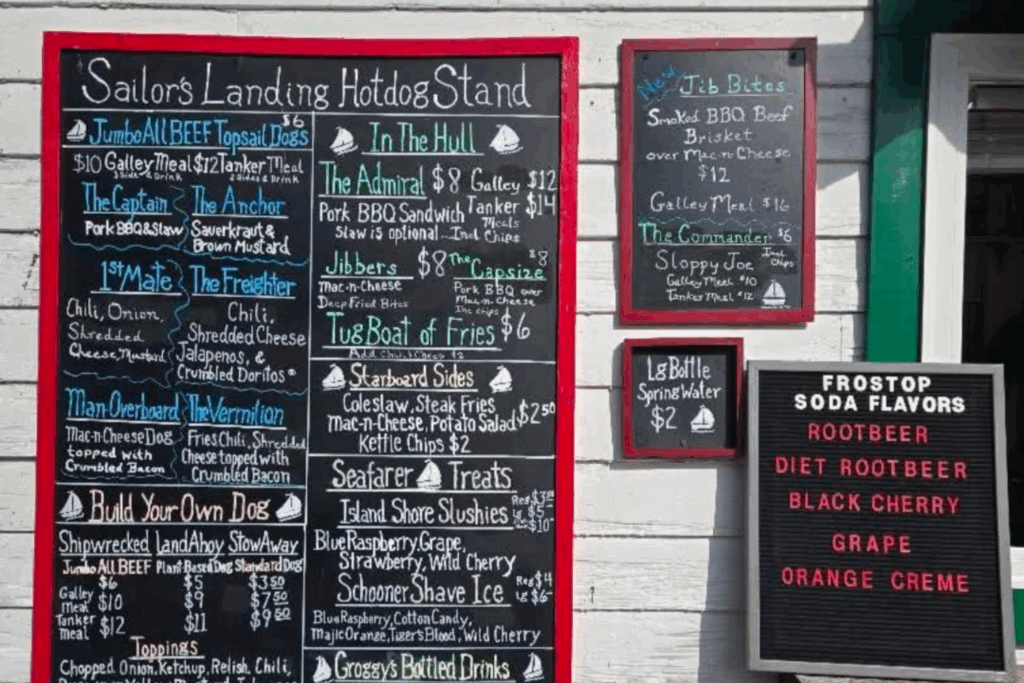 Sailor's Landing Hotdog Stand
Jumbo All BEEF Topsail Dogs $6
$10 Galley Meal $12 Tanker Meal
1 Side & Drink 2 Sides & Drink
The Captain
Pork BBQ & Slaw
The Anchor
Sauerkraut &
Brown Mustard
1st Mate
Chili, Onion,
Shredded
Cheese, Mustard
The Freighter
Chili,
Shredded Cheese
Jalapenos, &
Crumbled Doritos®
Man Overboard
Mac-n-Cheese Dog
topped with
Crumbled Bacon
The Vermilion
Fries Chili, Shredded
Cheese topped with
Crumbled Bacon
Build Your Own Dog
Shipwrecked Land Ahoy StowAway
Jumbo All BEEF Plant Based Dog Standard Dog
$6 $5 $3 50
Galley Meal $10 $9 $7 50
Tanker Meal $12 $11 $9 50
Toppings
Chopped Onion, Ketchup, Relish, Chili,
In The Hull
The Admiral $8 Galley $12
Pork BBQ Sandwich Tanker $14
Slaw is optional Meals
Incl Chips
Jibbers $8
Mac-n-Cheese
Deep Fried Bites
The Capsize $8
Pork BBQ over
Mac-n-Cheese
Inc chips
Tug Boat of Fries $6
Add Chili, Cheese $2
Starboard Sides
Coleslaw, Steak Fries
Mac-n-Cheese, Potato Salad $2 50
Kettle Chips $2
Seafarer Treats
Island Shore Slushies Reg $3
Lg $5
$10
Blue Raspberry, Grape,
Strawberry, Wild Cherry
Schooner Shave Ice Reg $4
Lg $6
Blue Raspberry, Cotton Candy,
Majic Orange, Tiger's Blood, Wild Cherry
Groggy's Bottled Drinks
New Jib Bites
Smoked BBQ Beef
Brisket
over Mac-n-Cheese
$12
Galley Meal $16
The Commander $6
Sloppy Joe Incl
Chips
Galley Meal $10
Tanker Meal $12
Lg Bottle
Spring Water
$2
FROSTOP
SODA FLAVORS
ROOTBEER
DIET ROOTBEER
BLACK CHERRY
GRAPE
ORANGE CREME